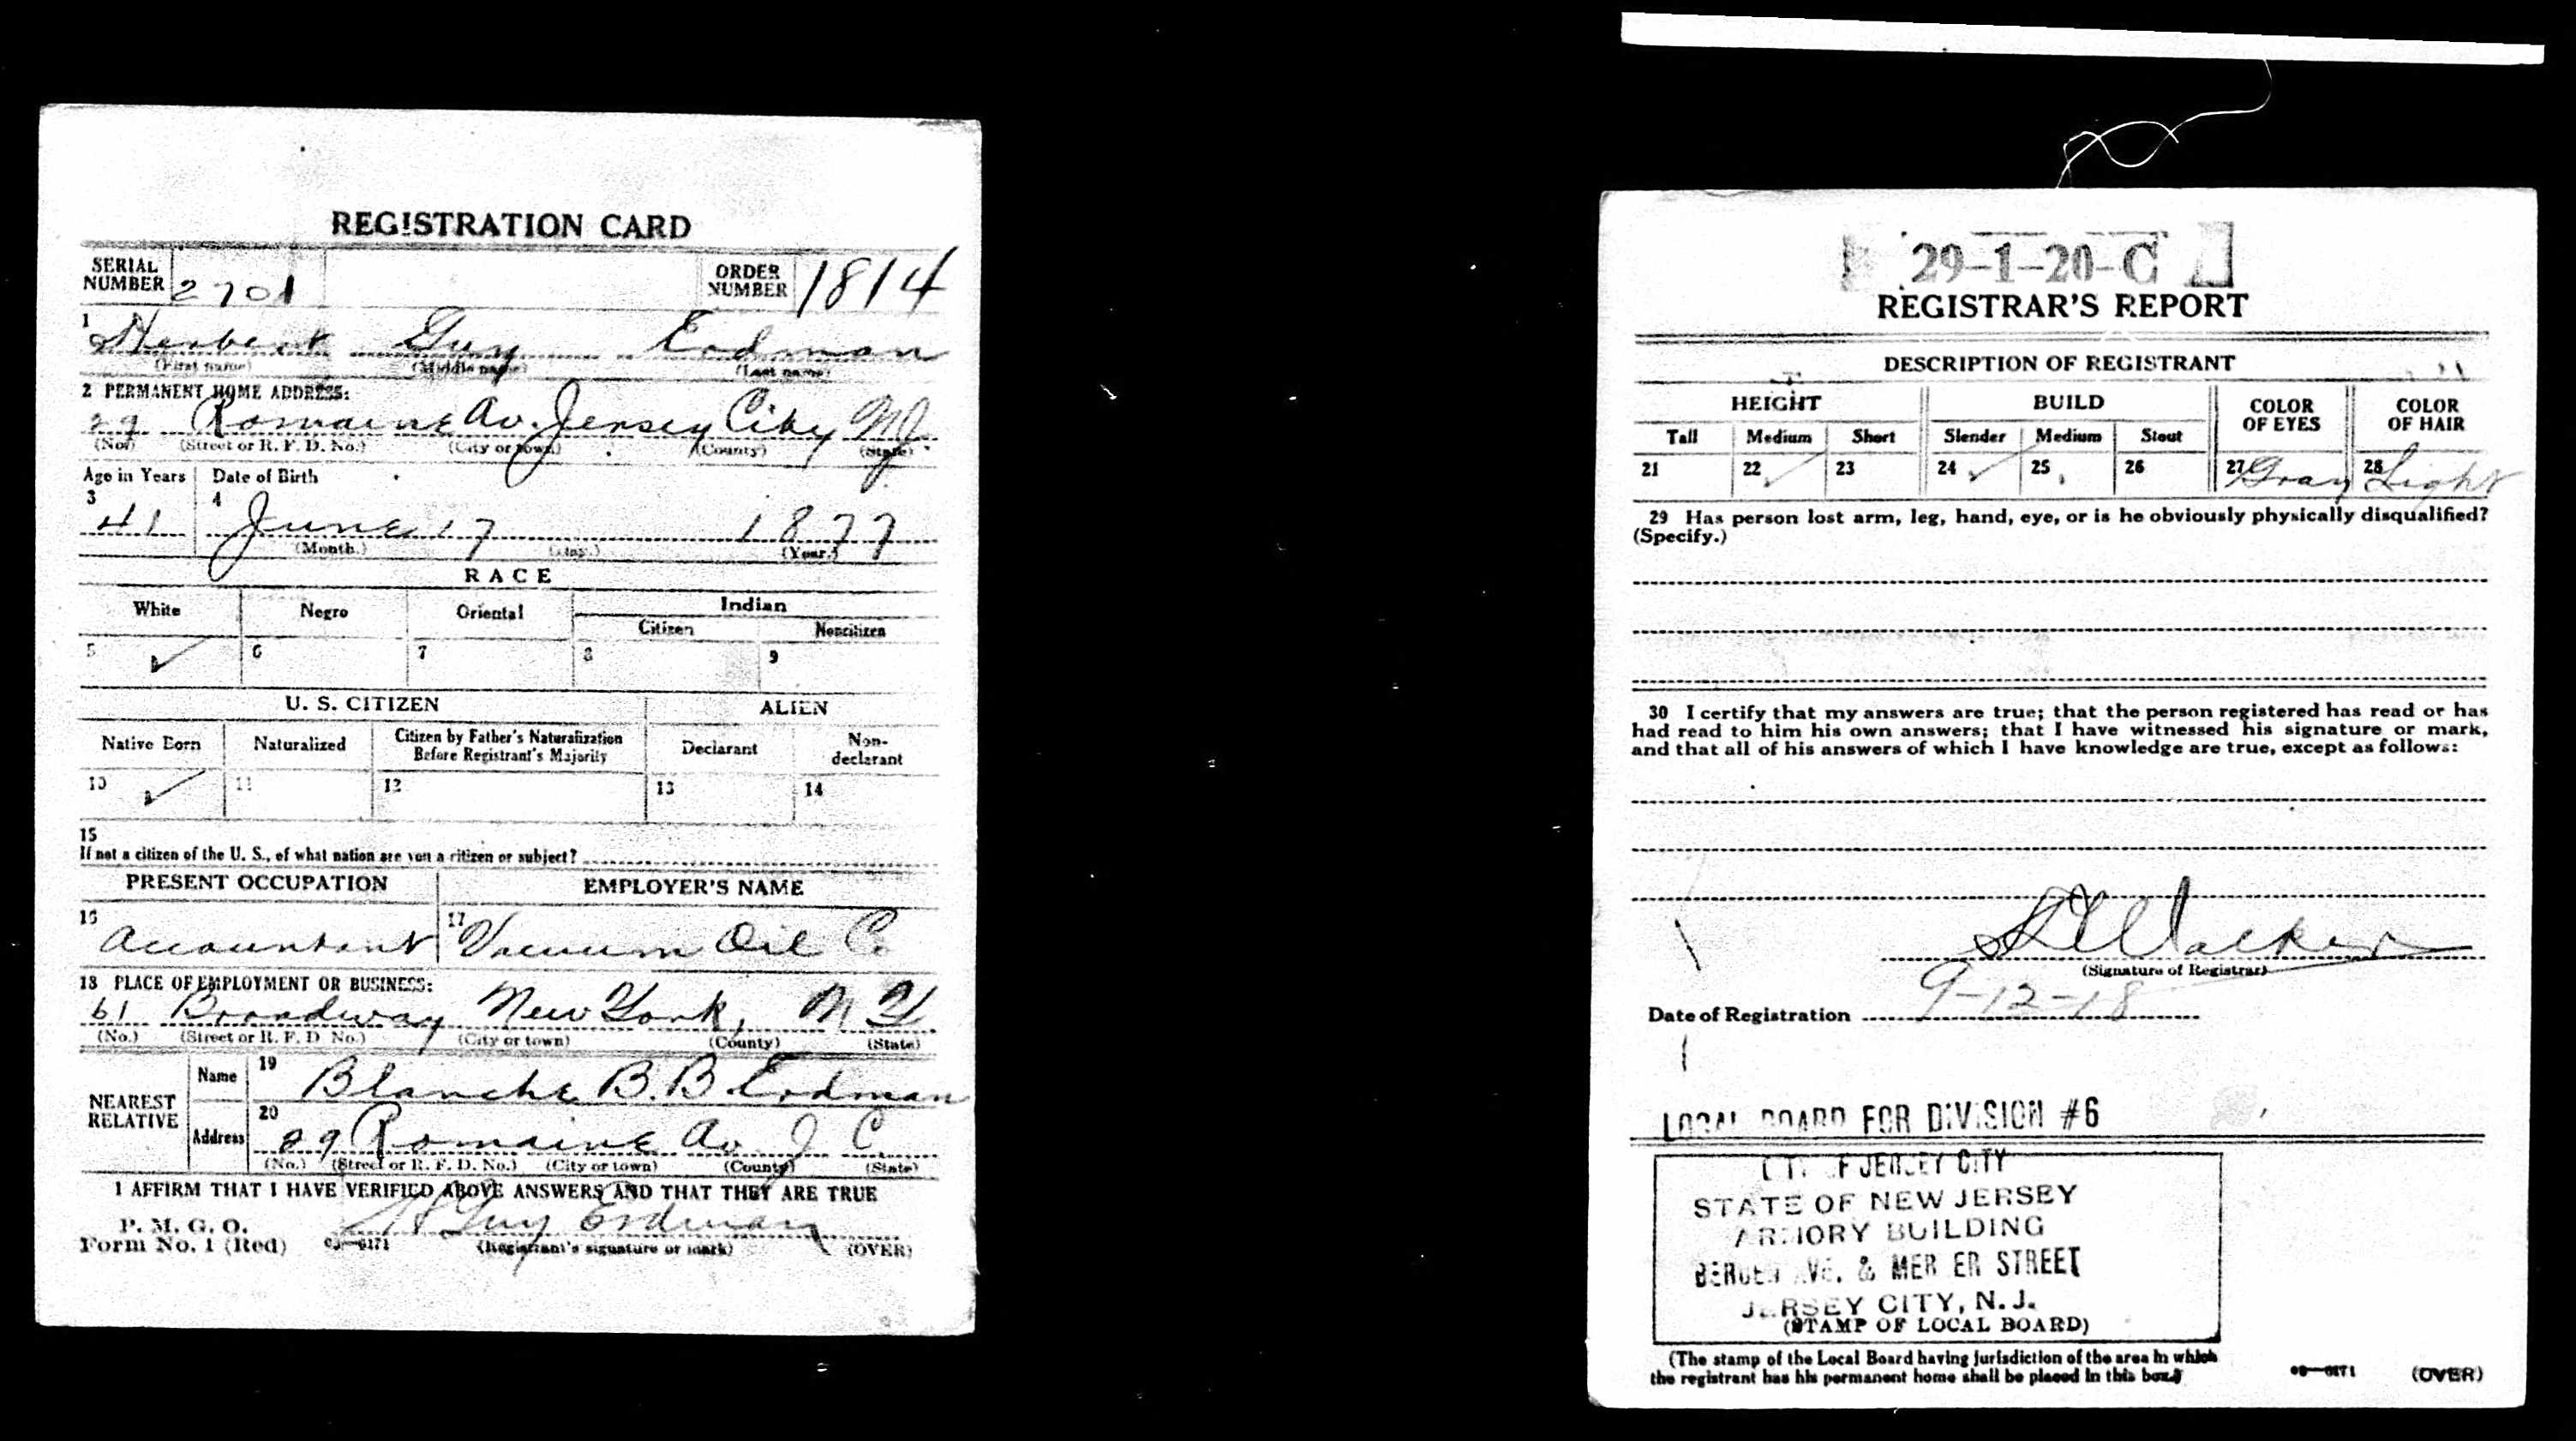 REGISTRATION CARD
SERIAL NUMBER 2701 ORDER NUMBER 1814
1 Herbert Guy Erdman
(First name) (Middle name) (Last name)
2 PERMANENT HOME ADDRESS:
29 Romaine Av. Jersey City NJ
(No.) (Street or R. F. D. No.) (City or town) (County) (State)
Age in Years Date of Birth
3 4
41 June 17 1877
(Month.) (Day.) (Year.)
RACE
White Negro Oriental Indian
Citizen Noncitizen
5 ✓ 6 7 8 9
U. S. CITIZEN ALIEN
Native Born Naturalized Citizen by Father's Naturalization Before Registrant's Majority Declarant Non-declarant
10 ✓ 11 12 13 14
15
If not a citizen of the U. S., of what nation are you a citizen or subject?
PRESENT OCCUPATION EMPLOYER'S NAME
16 Accountant 17 Vacuum Oil Co
18 PLACE OF EMPLOYMENT OR BUSINESS:
61 Broadway New York, N Y
(No.) (Street or R. F. D. No.) (City or town) (County) (State)
NEAREST RELATIVE
Name 19 Blanche B. B Erdman
Address 20 29 Romaine Av J C
(No.) (Street or R. F. D. No.) (City or town) (County) (State)
I AFFIRM THAT I HAVE VERIFIED ABOVE ANSWERS AND THAT THEY ARE TRUE
P. M. G. O.
Form No. 1 (Red) 03—6171 H Guy Erdman
(Registrant's signature or mark) (OVER)
29-1-20-C
REGISTRAR'S REPORT
DESCRIPTION OF REGISTRANT
HEIGHT BUILD COLOR OF EYES COLOR OF HAIR
Tall Medium Short Slender Medium Stout
21 22 ✓ 23 24 ✓ 25 26 27 Gray 28 Light
29 Has person lost arm, leg, hand, eye, or is he obviously physically disqualified?
(Specify.)
30 I certify that my answers are true; that the person registered has read or has
had read to him his own answers; that I have witnessed his signature or mark,
and that all of his answers of which I have knowledge are true, except as follows:
Walker
(Signature of Registrar)
Date of Registration 9-12-18
LOCAL BOARD FOR DIVISION #6
CITY OF JERSEY CITY
STATE OF NEW JERSEY
ARMORY BUILDING
BERGEN AVE. & MERCER STREET
JERSEY CITY, N. J.
(STAMP OF LOCAL BOARD)
(The stamp of the Local Board having jurisdiction of the area in which
the registrant has his permanent home shall be placed in this box.)
03—6171 (OVER)